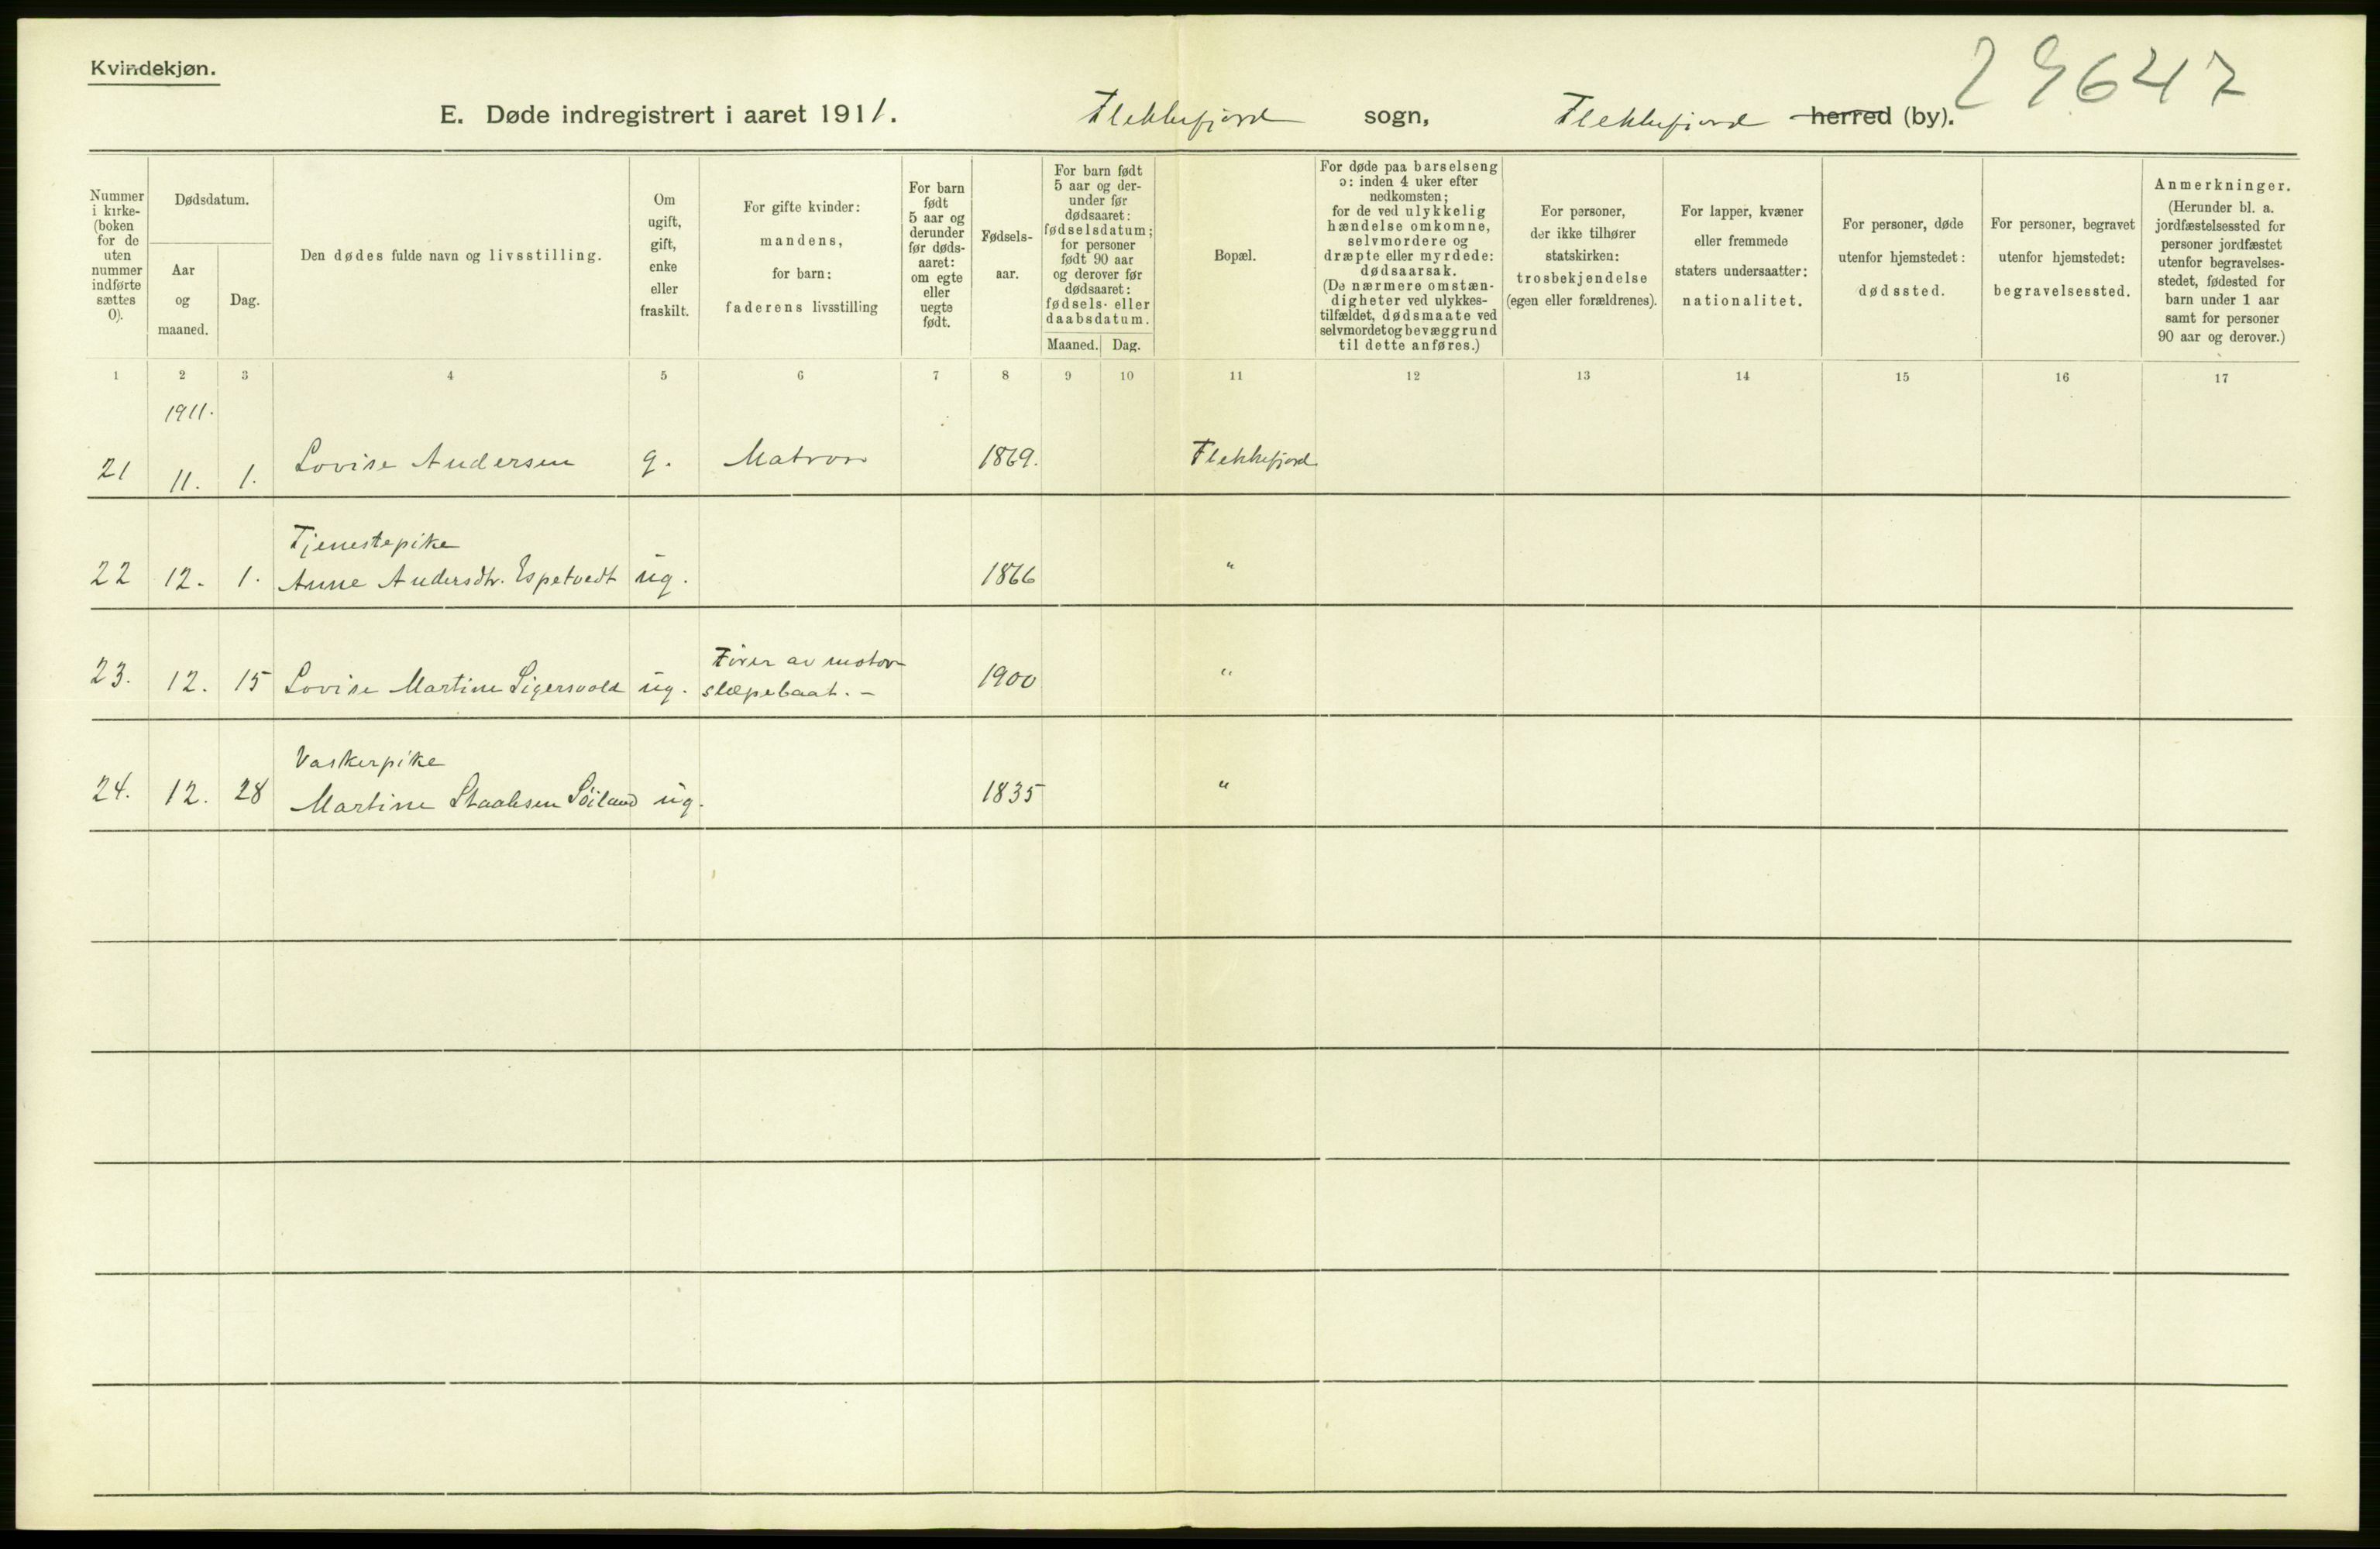 Kvindekjøn.
29647
E. Døde indregistrert i aaret 1911. Flekkefjord sogn, Flekkefjord herred (by).
Nummer i kirke- (boken for de uten nummer indførte sættes 0).
Dødsdatum.
Aar og maaned.
Dag.
Den dødes fulde navn og livsstilling.
Om ugift, gift, enke eller fraskilt.
For gifte kvinder: mandens, for barn: faderens livsstilling
For barn født 5 aar og derunder før døds- aaret: om egte eller uegte født.
Fødsels- aar.
For barn født 5 aar og der- under før dødsaaret: fødselsdatum; for personer født 90 aar og derover før dødsaaret: fødsels- eller daabsdatum.
Maaned. Dag.
Bopæl.
For døde paa barselseng ɔ: inden 4 uker efter nedkomsten; for de ved ulykkelig hændelse omkomne, selvmordere og dræpte eller myrdede: dødsaarsak. (De nærmere omstæn- digheter ved ulykkes- tilfældet, dødsmaate ved selvmordet og bevæggrund til dette anføres.)
For personer, der ikke tilhører statskirken: trosbekjendelse (egen eller forældrenes).
For lapper, kvæner eller fremmede staters undersaatter: nationalitet.
For personer, døde utenfor hjemstedet: dødssted.
For personer, begravet utenfor hjemstedet: begravelsessted.
Anmerkninger. (Herunder bl. a. jordfæstelsessted for personer jordfæstet utenfor begravelses- stedet, fødested for barn under 1 aar samt for personer 90 aar og derover.)
1 2 3 4 5 6 7 8 9 10 11 12 13 14 15 16 17
1911.
21 11. 1. Lovise Andersen g. Matros 1869. Flekkefjord
Tjenestepike
22 12. 1. Anne Andersdtr. Espetvedt ug. 1866 "
Fører av motor-
23. 12. 15 Lovise Martine Sigersvold ug. slæpebaat. - 1900 "
Vaskerpike
24. 12. 28 Martine Staalesen Söiland ug. 1835 "